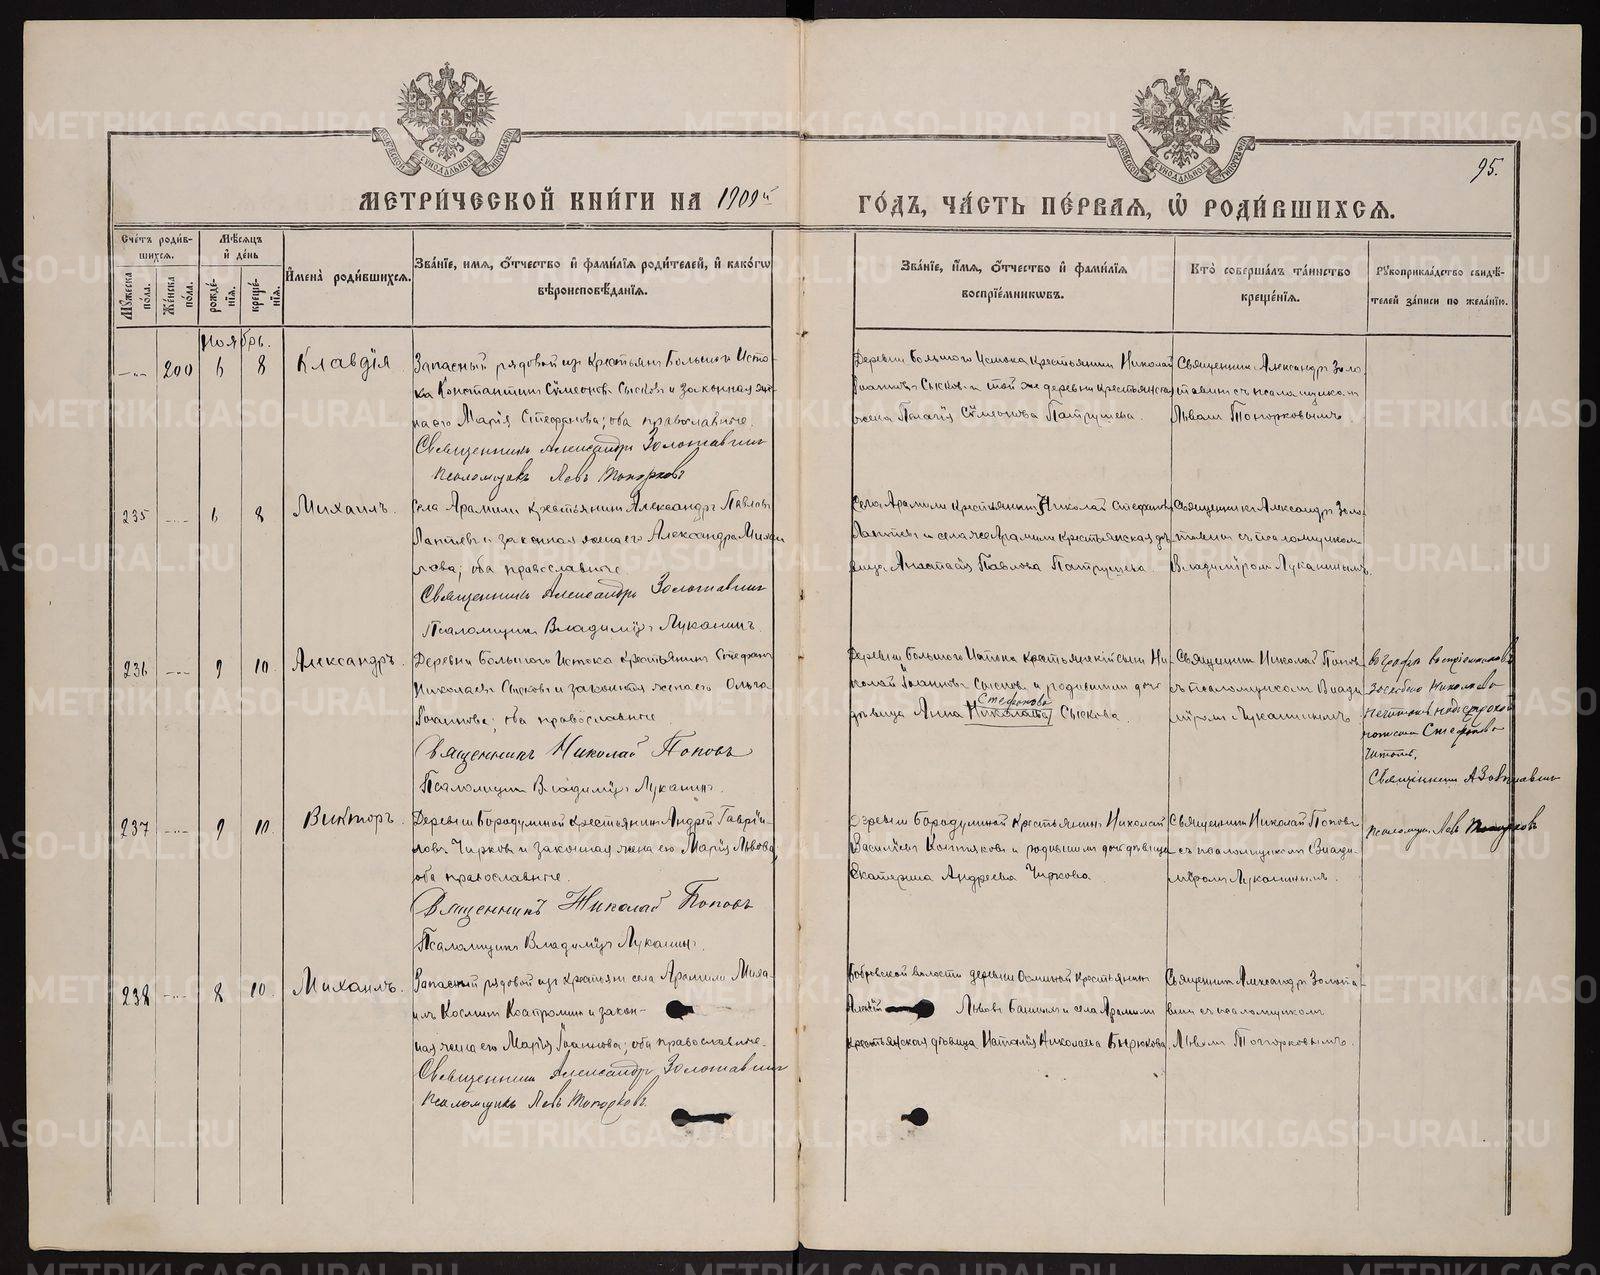 МОСКОВСКОЙ СѴНОДАЛЬНОЙ ТИПОГРАФІИ
МОСКОВСКОЙ СѴНОДАЛЬНОЙ ТИПОГРАФІИ
95.
МЕТРИ́ЧЕСКОЙ КНИ́ГИ НА 1909й
ГО́ДЪ, ЧА́СТЬ ПЕ́РВАЯ, Ѡ РОДИ́ВШИХСЯ.
Сче́тъ роди́в-
шихся.
Мѣ́сяцъ
и҆ де́нь
Мꙋ́жеска по́ла.
Же́нска по́ла.
рожде́-нїя.
креще́-нїя.
И҆мена̀ роди́вшихся.
Зва́нїе, и́мя, ѻ҆́тчество и҆ фами́лїя роди́телей, и҆ како́гѡ
вѣроисповѣ́данїя.
Зва́нїе, и́мя, ѻ҆́тчество и҆ фами́лїя
воспрїе́мникѡвъ.
Кто̀ соверша́лъ та́инство
креще́нїя.
Рꙋкоприкла́дство свидѣ́-
телей за́писи по жела́нїю.
Ноябрь.
200 6 8 Клавдія
Запасный рядовой изъ крестьянъ Большого Исто-
ка Константинъ Сѵмеоновъ Сысковъ и законная же-
на его Марія Стефанова; оба православные.
Священникъ Александръ Золотавинъ
Псаломщикъ Левъ Топорковъ
Деревни Большого Истока крестьянинъ Николай
Іоанновъ Сысковъ и той же деревни крестьянская
жена Пелагія Сѵмеонова Патрушева.
Священникъ Александръ Золо-
тавинъ съ псаломщикомъ
Львомъ Топорковымъ.
235 6 8 Михаилъ.
Села Арамили крестьянинъ Александръ Павловъ
Лаптевъ и законная жена его Александра Михаи
лова; оба православные
Священникъ Александръ Золотавинъ
Псаломщикъ Владиміръ Луканинъ.
Села Арамили крестьянинъ Николай Стефановъ
Лаптевъ и села же Арамили крестьянская дѣ-
вица Анастасія Павлова Патрушева
Священникъ Александръ Золо-
тавинъ съ псаломщикомъ
Владиміромъ Луканинымъ.
236 9 10 Александръ.
Деревни Большого Истока крестьянинъ Стефанъ
Николаевъ Сысковъ и законная жена его Ольга
Іоаннова; оба православные.
Священникъ Николай Поповъ
Псаломщикъ Владиміръ Луканинъ.
Деревни Большого Истока крестьянскій сынъ Ни-
колай Іоанновъ Сысковъ и родителей дочь
Стефанова
дѣвица Анна Николаева Сыскова.
Священникъ Николай Поповъ
съ псаломщикомъ Влади
міромъ Луканинымъ.
Въ графѣ воспріемниковъ
зачеркнуто Николаева
не читать надъ строкой
написан. Стефанова
читать.
Священникъ А Золотавинъ
Псаломщ. Левъ Топорковъ
237 9 10 Викторъ.
Деревни Бородулиной крестьянинъ Андрей Гаврiи-
ловъ Чирковъ и законная жена его Марія Львова,
оба православные.
Священникъ Николай Поповъ
Псаломщикъ Владиміръ Луканинъ.
Деревни Бородулиной крестьянинъ Николай
Васильевъ и родителей дочь дѣвица
Екатерина Андреева Чиркова.
Священникъ Николай Поповъ
съ псаломщикомъ Влади-
міромъ Луканинымъ.
238 8 10. Михаилъ.
Запасный рядовой изъ крестьянъ села Арамили Миха-
илъ Космин Костроминъ и закон-
ная жена его Марія Іоаннова; оба православные.
Священникъ Александръ Золотавинъ
Псаломщикъ Левъ Топорковъ.
Бобровской волости деревни крестьянинъ
Львовъ и села Арамили
крестьянская дѣвица Наталія Николаева Бирюкова.
Священникъ Александръ Золота-
винъ съ псаломщикомъ
Львомъ Топорковымъ.
METRIKI.GASO-URAL.RU